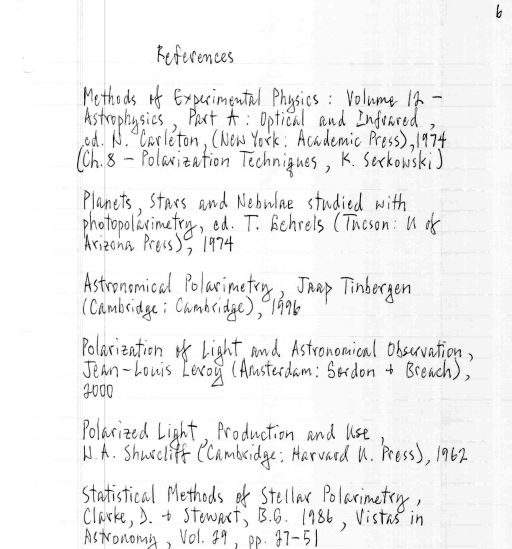 6
References
Methods of Experimental Physics : Volume 12 -
Astrophysics, Part A : Optical and Infrared,
ed. N. Carleton, (New York: Academic Press), 1974
(Ch. 8 - Polarization Techniques, K. Serkowski)
Planets, Stars and Nebulae studied with
photopolarimetry, ed. T. Gehrels (Tucson: U of
Arizona Press), 1974
Astronomical Polarimetry, Jaap Tinbergen
(Cambridge: Cambridge), 1996
Polarization of Light and Astronomical Observation,
Jean-Louis Leroy (Amsterdam: Gordon + Breach),
2000
Polarized Light, Production and Use,
W.A. Shurcliff (Cambridge: Harvard U. Press), 1962
Statistical Methods of Stellar Polarimetry,
Clarke, D. + Stewart, B.G. 1986, Vistas in
Astronomy, Vol. 29, pp. 27-51